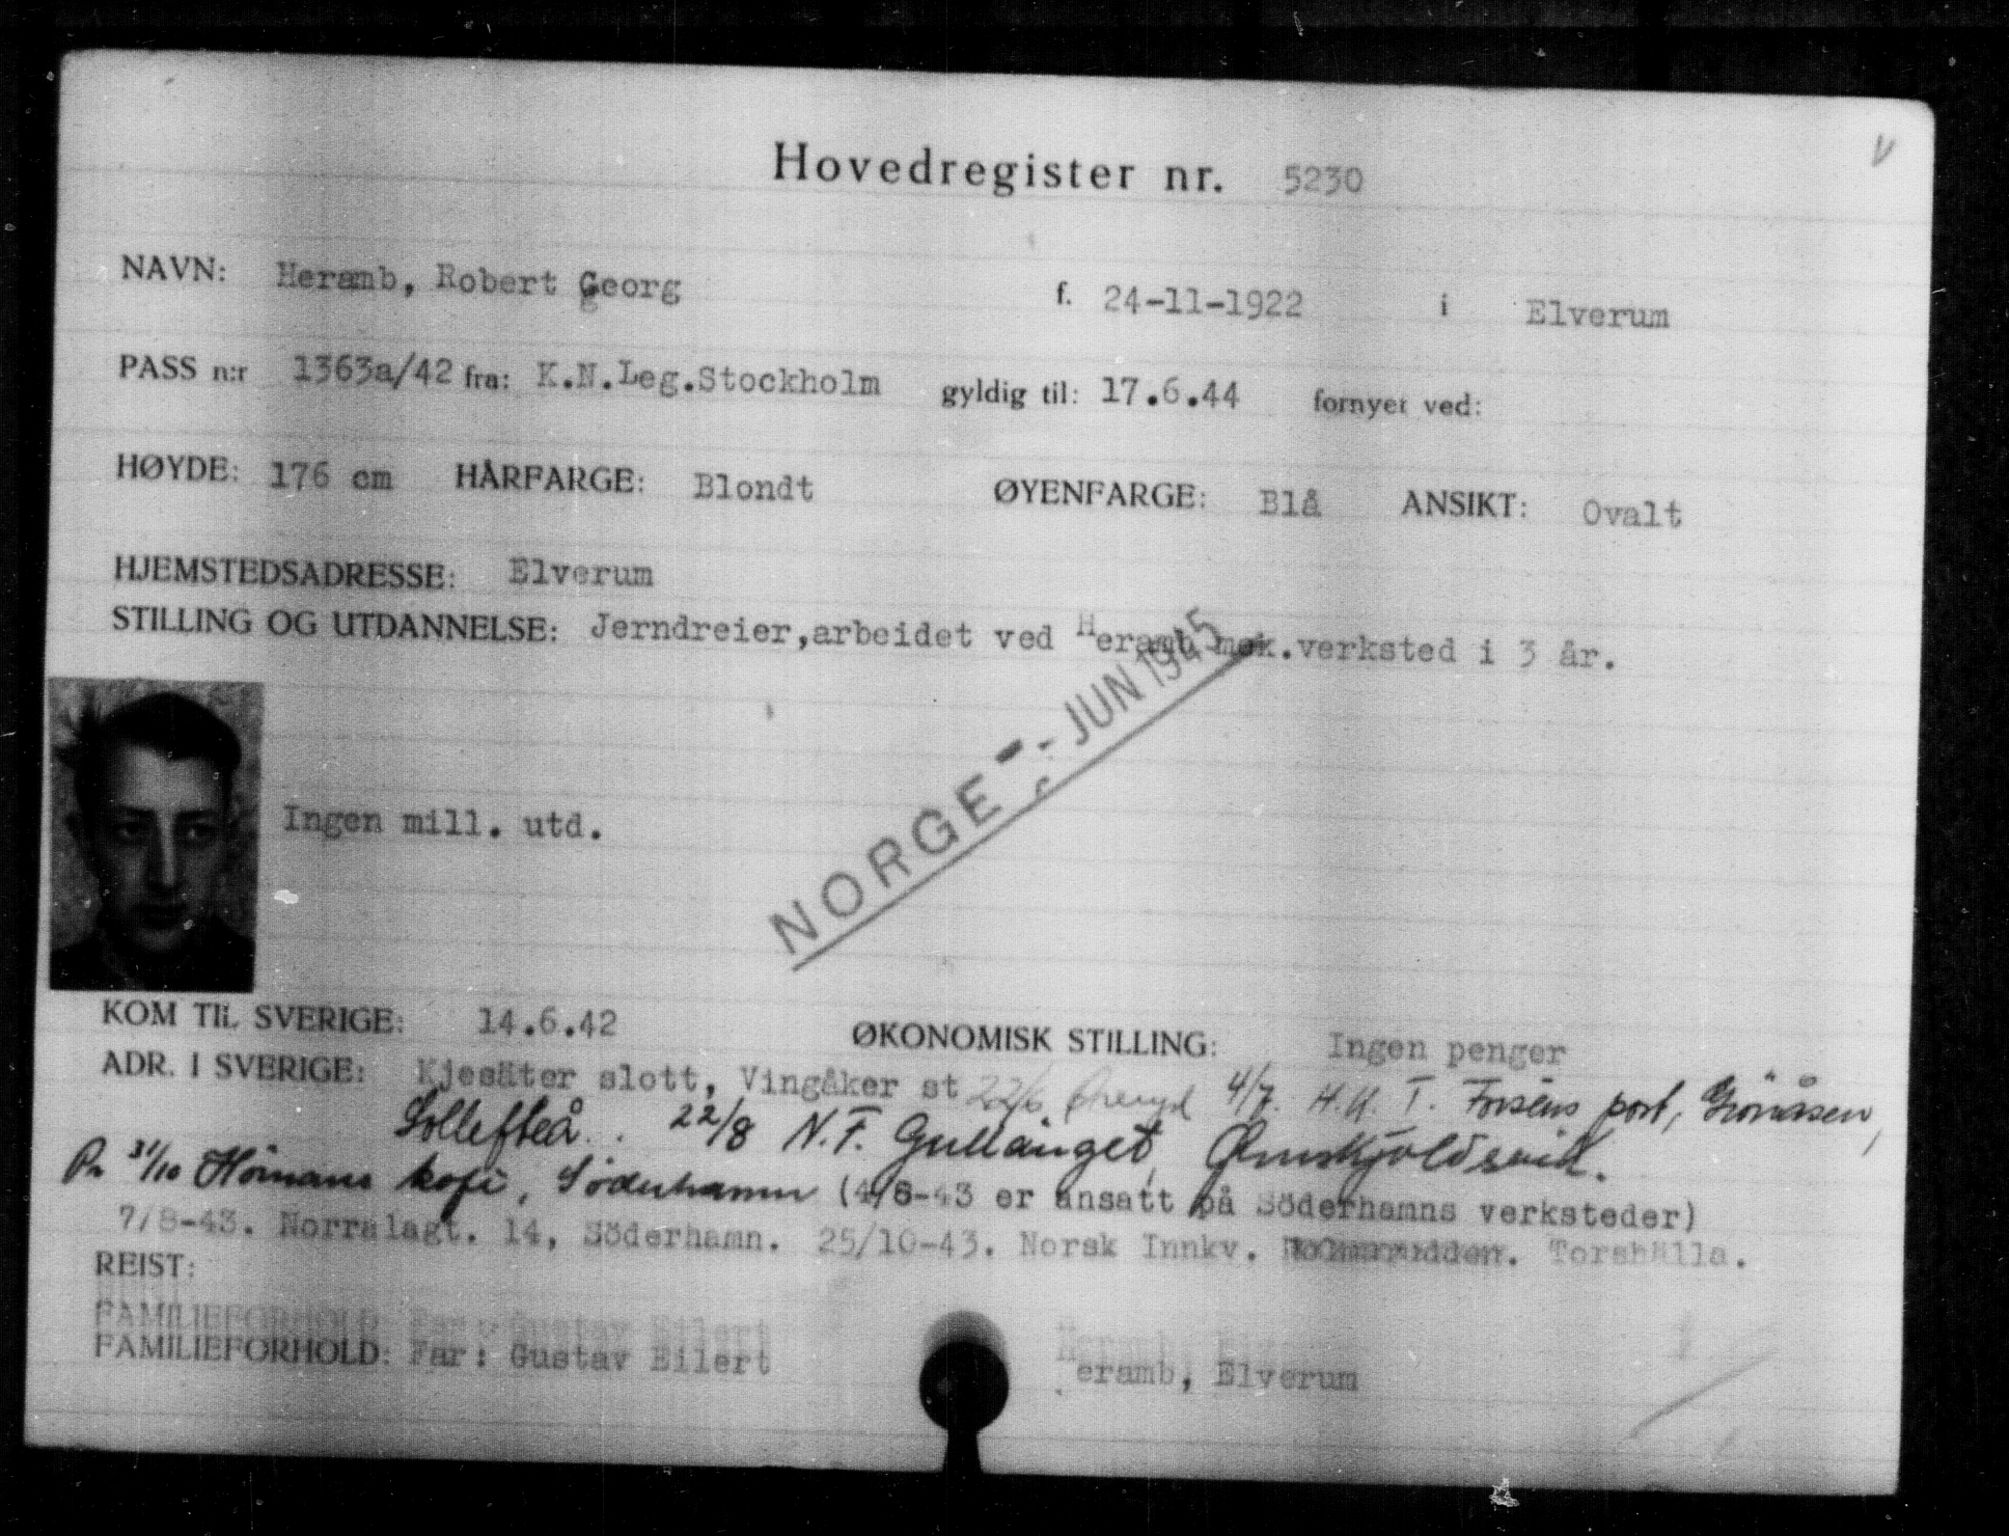 Hovedregister nr. 5230
NAVN: Heramb, Robert Georg f. 24-11-1922 i Elverum
PASS n:r 1363a/42 fra: K.N.Leg.Stockholm gyldig til: 17.6.44 fornyet ved:
HØYDE: 176 cm HÅRFARGE: Blondt ØYENFARGE: Blå ANSIKT: Ovalt
HJEMSTEDSADRESSE: Elverum
STILLING OG UTDANNELSE: Jerndreier,arbeidet ved Heramb mek.verksted i 3 år.
NORGE - JUN 1945
Ingen mill. utd.
KOM TIL SVERIGE: 14.6.42 ØKONOMISK STILLING: Ingen penger
ADR. I SVERIGE: Kjesäter slott, Vingåker st 22/6 4/7. H.U. T. Forsens post, Grönåsen,
Sollefteå. 22/8 N.F. Gullänget, Ørnskjoldsvik.
Pr 31/10 Höinans kafe, Söderhamn (4/8-43 er ansatt på Söderhamns verksteder)
7/8-43. Norralagt. 14, Söderhamn. 25/10-43. Norsk Innkv. Torshälla.
REIST:
FAMILIEFORHOLD: Far: Gustav Eilert Heramb, Elverum